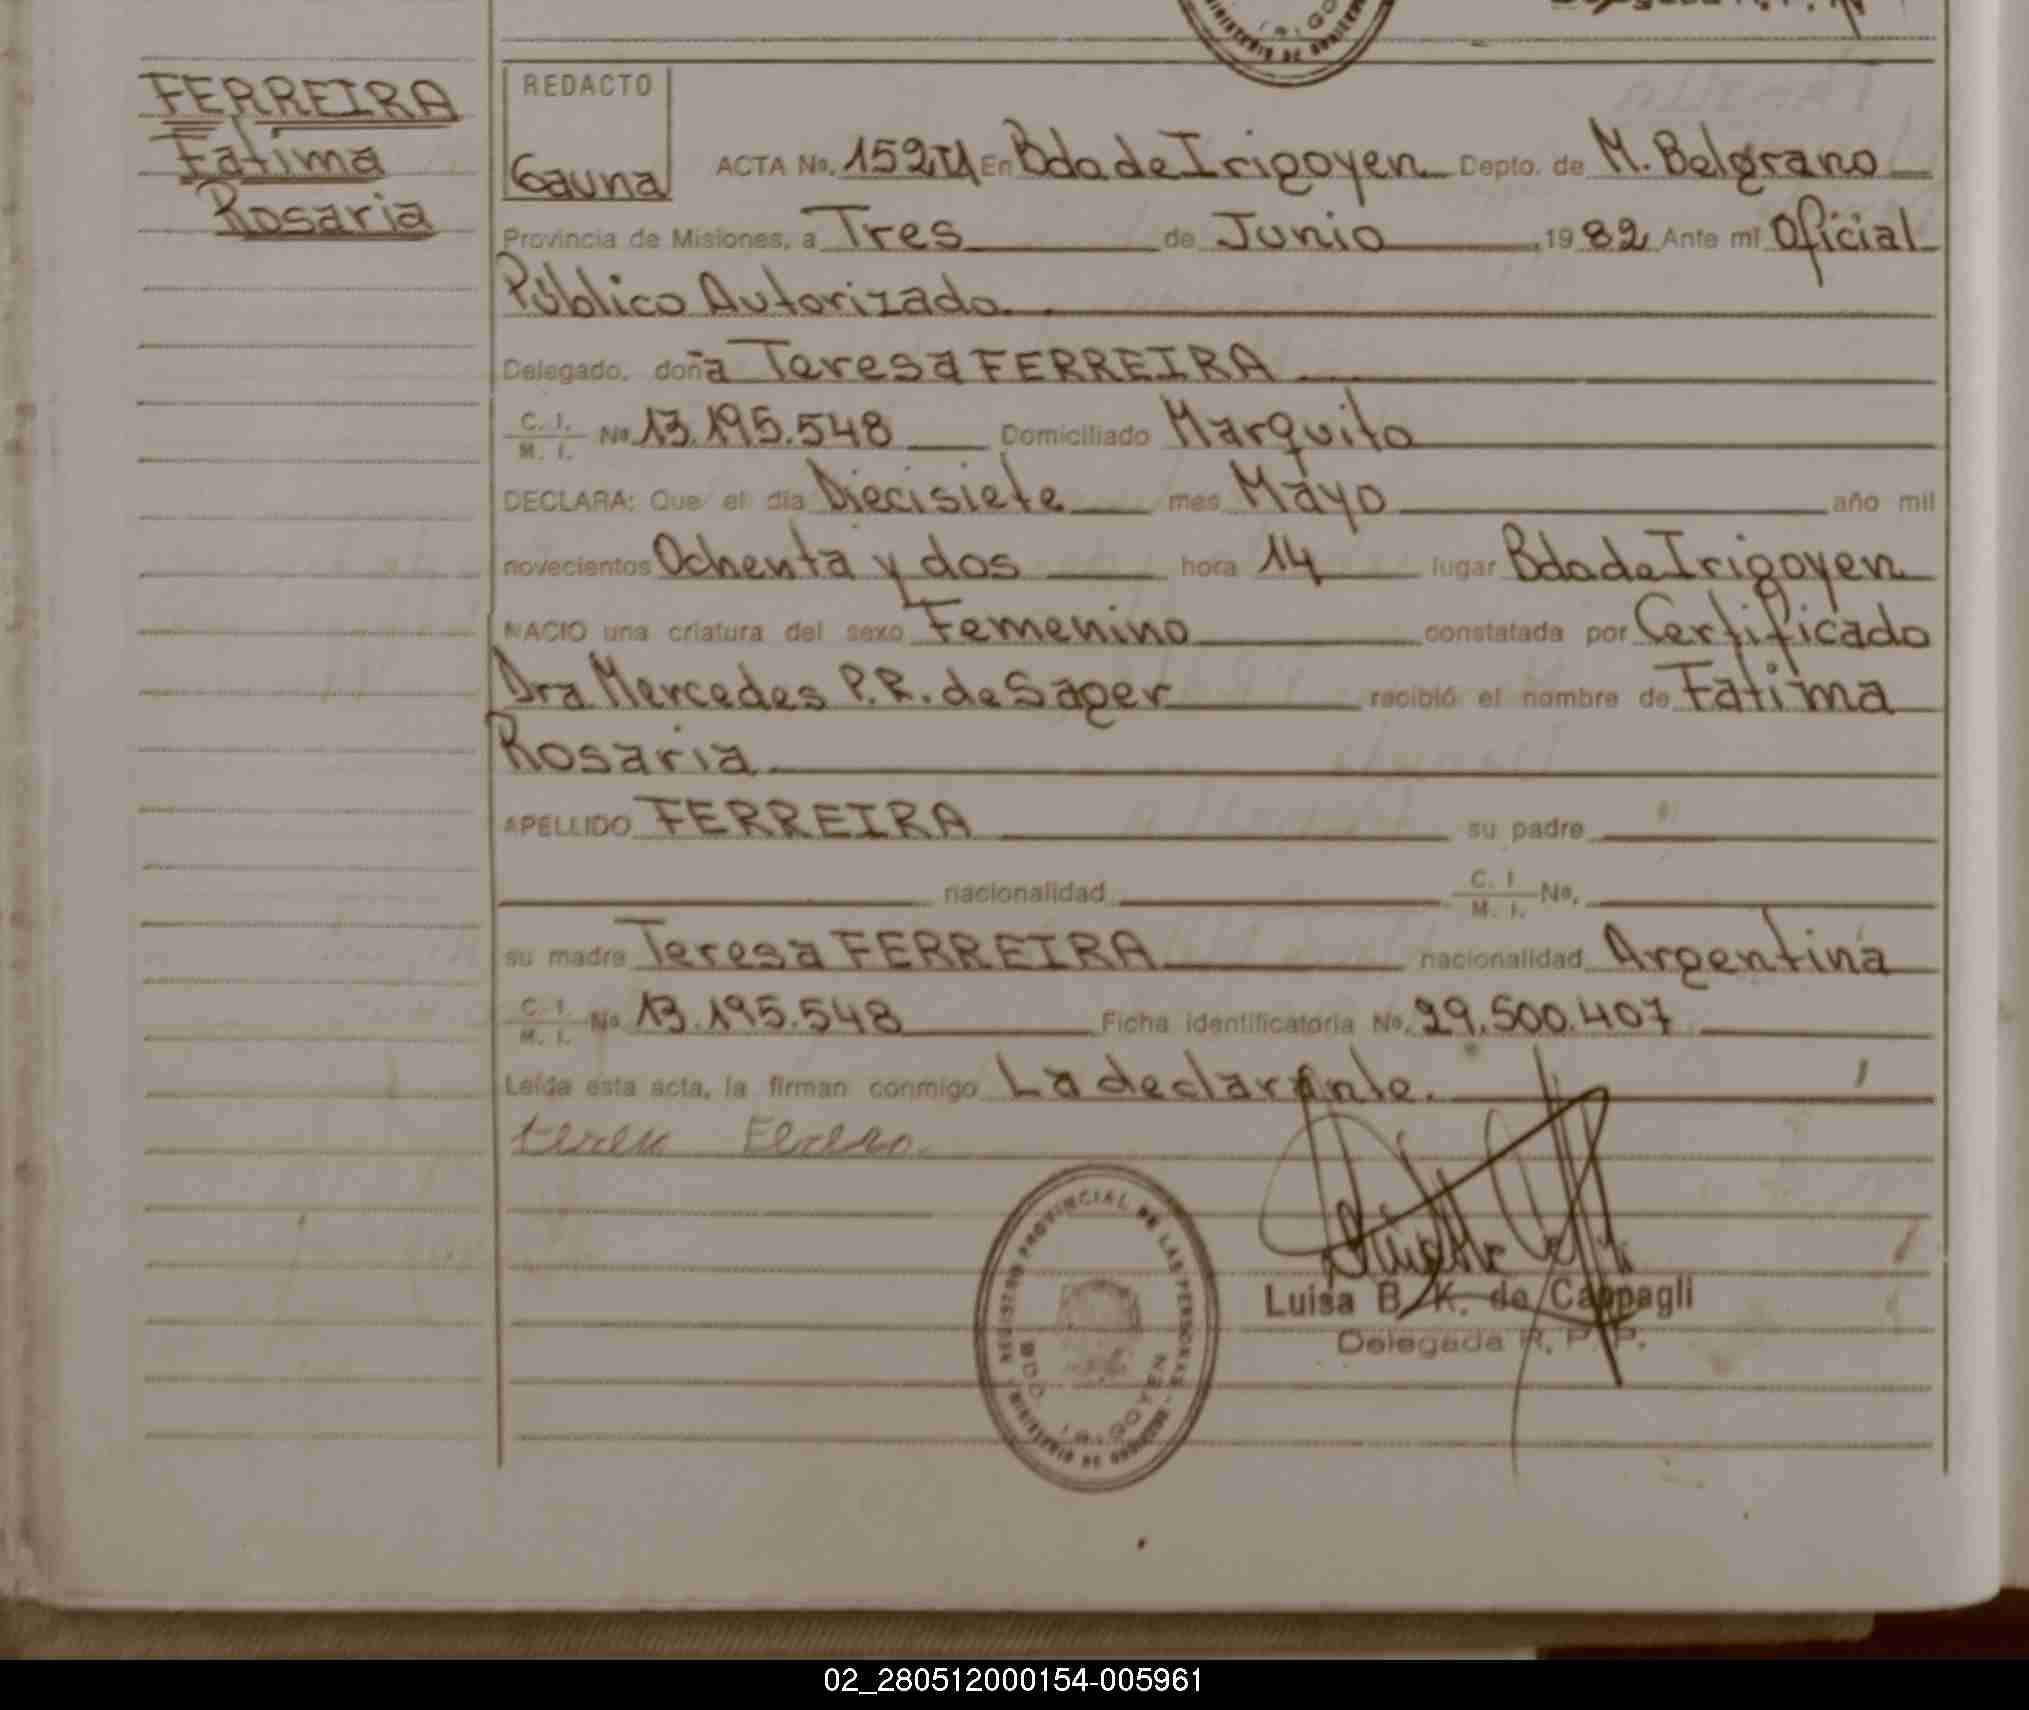 FERREIRA
Fatima
Rosaria
REDACTO
Gauna
ACTA No. 152 En Bdo de Irigoyen Depto. de M. Belgrano
Provincia de Misiones, a Tres de Junio 1982 Ante mi Oficial
Público Autorizado
Delegado, doña Teresa FERREIRA
C. I. / M. I. No 13.195.548 Domiciliado Marquito
DECLARA: Que el día Diecisiete mes Mayo año mil
novecientos Ochenta y dos hora 14 lugar Bdo de Irigoyen
NACIO una criatura del sexo Femenino constatada por Certificado
Dra Mercedes P.R. de Sager recibió el nombre de Fatima
Rosaria
APELLIDO FERREIRA su padre
nacionalidad C. I. / M. I. No.
su madre Teresa FERREIRA nacionalidad Argentina
C. I. / M. I. No 13.195.548 Ficha identificatoria No. 29.500.407
Leída esta acta, la firman conmigo La declarante.
REGISTRO PROVINCIAL DE LAS PERSONAS
BDO. IRIGOYEN
Luisa B. K. de Cappagli
Delegada R. P. P.
02_280512000154-005961